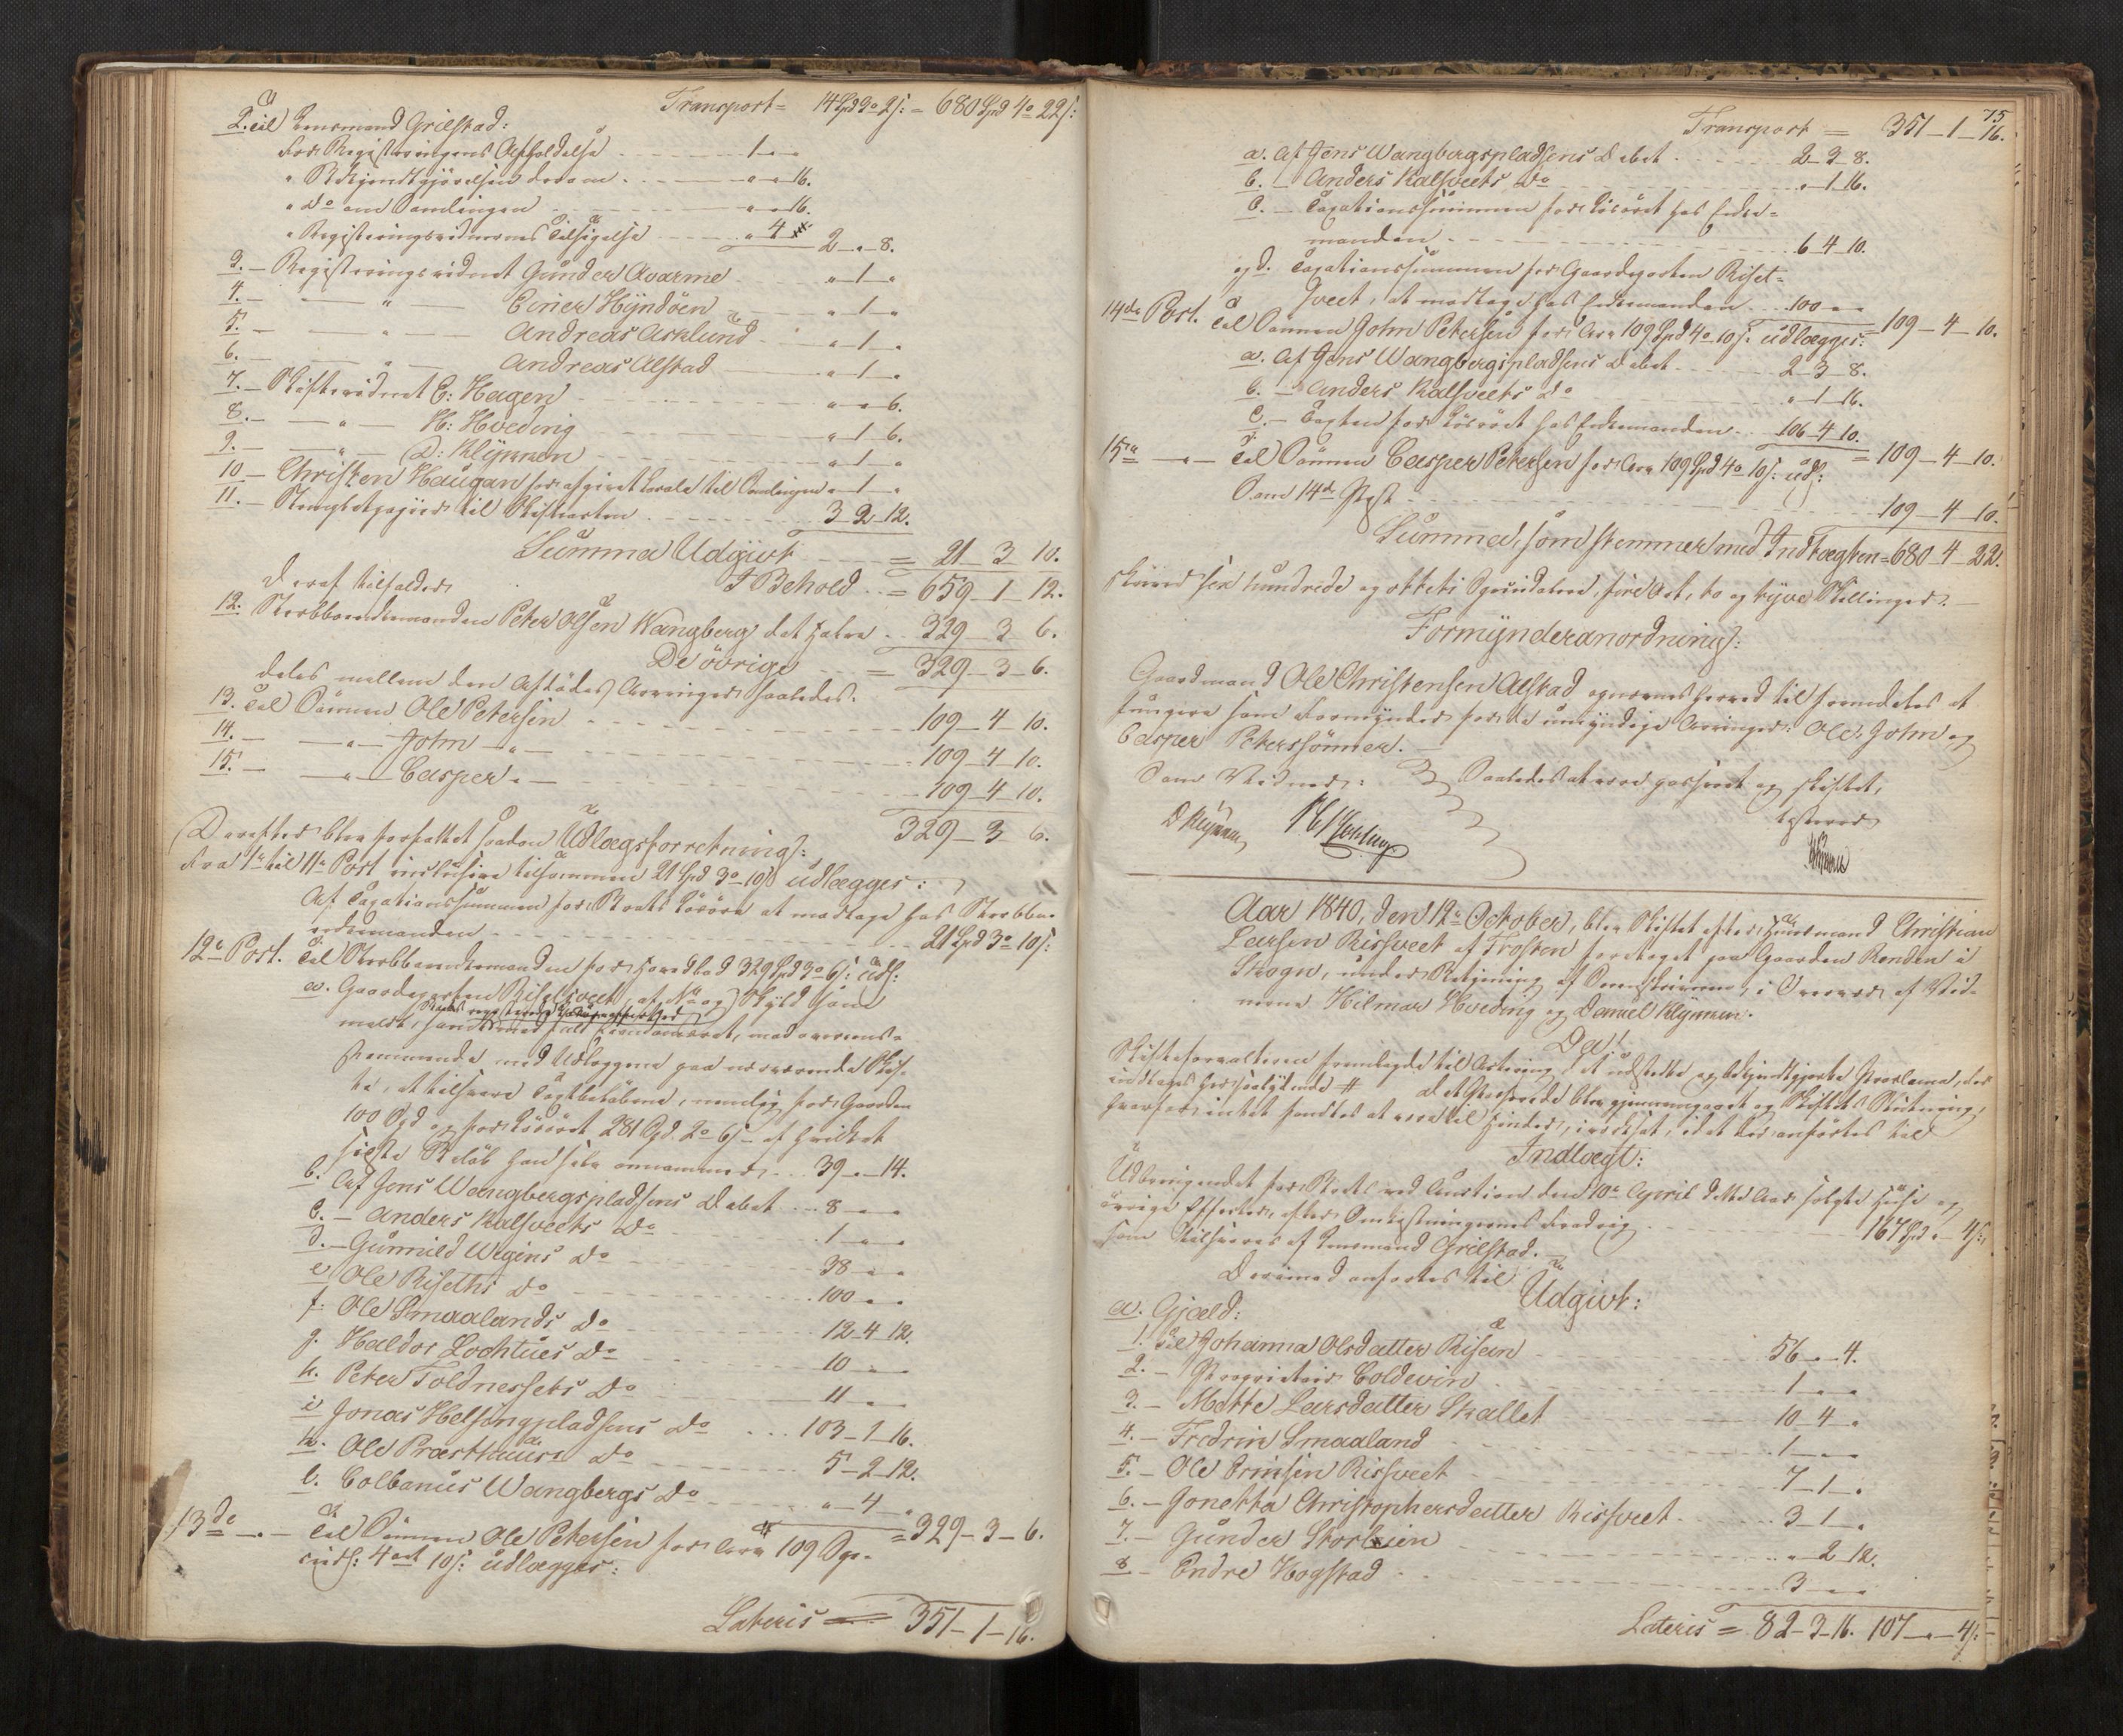 Transport = 14 Spd 3o 2 s: = 680 Spd 4o 22 s:
2. til Lensmand Grilstad:
For Registeringens Afholdelse 1 - "
" Bekjendtgjørelsen derom " " 16.
" do om Samlingen " " 16.
" Registeringsvidnernes Tilsigelse " 4
2 - " - 8.
3. - Registeringsvidnet Gunder Avarme " 1 "
4. - " - Einer Hyndöen " 1 "
5. - " - Andreas Asklund " 1 "
6. - " - Andreas Alstad " 1 "
7. - Skiftevidnet C: Hagen " " 6.
8. - " - H: Hveding " 1 6.
9. - " - D: Klÿkken " 1 "
10 - Christen Haugan for afgivet Locale til Samlingen " 1 "
11. - Stempletpapiir til Skifteacten 3 2 12.
Summa Udgivt = 21 - 3 - 10.
I Behold = 659 - 1 - 12.
deraf tilfalder
12. Sterbboenkemanden Peter Olsen Wangberg det halve 329 - 3 6.
De övrige = 329 - 3 - 6.
deles mellem den Afdødes Arvinger saaledes.
13. Til Sønnen Ole Petersen 109 - 4 - 10.
14. - " - John - " - 109 - 4 10.
15. - " - Casper " - 109 - 4 10.
329 - 3 6.
Derefter blev forfattet saadan Udlægsforretning:
Fra 1te til 11te Post inclusive tilsammen 21 Spd 3o 10 s udlægges:
Af Taxationssummen for Boets Løsøre at modtage hos Sterbbo-
enkemanden 21 Spd 3o 10 s:
12te Post. Til Sterbboenkemanden for Hovedlod 329 Spd 3o 6 s: udl:
a. Gaardeparten Risettveet, af No og Skyld som
stemmende med Udlæggene paa nærværende Skif-
te, at tilsvare Taxtbeløbene, nemlig for Gaarden
100 Spd og for Løsøret 281 Spd. 2o 6 s - af hvilket
sidste Beløb han selv annammer 39 " 14.
b. Af Jens Wangbergspladsens Debet 8 " "
c. - Anders Kalsveets do 1 " "
d. - Gunnild Wegens do 38 " "
e Ole Riseths do 100 " "
f: Ole Smaalands do 12 4 12.
g. Haldor Lochtues do 10 " "
h. Peter Foldnessets do 11 " "
i Jonas Helsingpladsens do 103 - 1 16.
k. Ole Præsthuus do 5 - 2 12.
l. Colbanus Wangbergs do " 4 "
= 329 - 3 - 6.
13de - " - Til Sønnen Ole Petersen for Arv 109 Spe-
cids: 4 ort 10 s: udlægges:
Lateris = 351 - 1 - 16.
75
Transport = 351 - 1 - 16.
a. Af Jens Wangbergspladsens Debet 2 - 3 8.
b. - Anders Kalsveets do " 1 16.
c. - Taxationssummen for Løsøret hos Enke-
manden 6 4 10.
og d. Taxationssummen for Gaardeparten Riset-
tveet, at modtage hos Enkemanden 100 " "
109 - 4 - 10.
14de Post. Til Sønnen John Petersen for Arv 109 Spd 4o 10 s: udlægges:
a. Af Jens Wangbergspladsens Debet 2 - 3 - 8.
b. - Anders Kalsveets do " 1 16.
c. - Taxten for Løsøret hos Enkemanden 106 4 10.
= 109 - 4 - 10.
15de - " - Til Sønnen Casper Petersen for Arv 109 Spd 4o 10 s: udl:
Som 14de Post 109 - 4 - 10.
Summa, som stemmer med Indtægten = 680 - 4 - 22.
skriver sex hundrede og otteti Speciedaler, fire Ort, to og tyve Skillinger. -
Formynderanordning:
Gaardmand Ole Christensen Alstad opnævnes herved til fremdeles at
fungere som Formynder for de umyndige Arvinger: Ole, John og
Casper Peterssønner. -
Som Vidner: Saaledes at være passeret og skiftet,
testerer
D Klykken H Hveding
Aar 1840, den 12te October, blev Skiftet efter Huusmand Christian
Larsen Rissveet af Frosten foretaget paa Gaarden Renden i
Skogn, under Betjening af Sorenskriveren, i Overvær af Vid-
nerne Hilmar Hveding og Daniel Klykken.
Da!
Skifteforvalteren fremlagde til Actering det udstedte og bekjendtgjorte Proclama, der
indtages saalydende # Det Passerede blev gjennemgaaet og Skiftets Slutning,
hvorfor intet fandtes at være til Hinder, iværksat, idet der anførtes til
Indtægt:
Udbringendet for Boets ved Auction den 10de April d. A. solgte Huse og
øvrige Effecter, efter Omkostningernes Fradrag 167 Spd " 4 s:
som tilsvares af Lensmand Grilstad. -
Derimod anføres til
Udgivt:
a. Gjæld:
1. Til Johanna Olsdatter Risein 56 " 4.
2. - Proprietair Coldevin 1 " "
3. - Mette Larsdatter Skallet 10 4 "
4. - Fredrin Smaaland 1 " "
5. - Ole Ernsen Rissveet 7 - 1 "
6. - Jonetta Christophersdatter Rissveet 3 1 "
7. - Gunder Storlein " 2 12.
8 - Endre Hogstad 3 " "
Lateris = 82 - 3 - 16. 107 - " - 4 s: